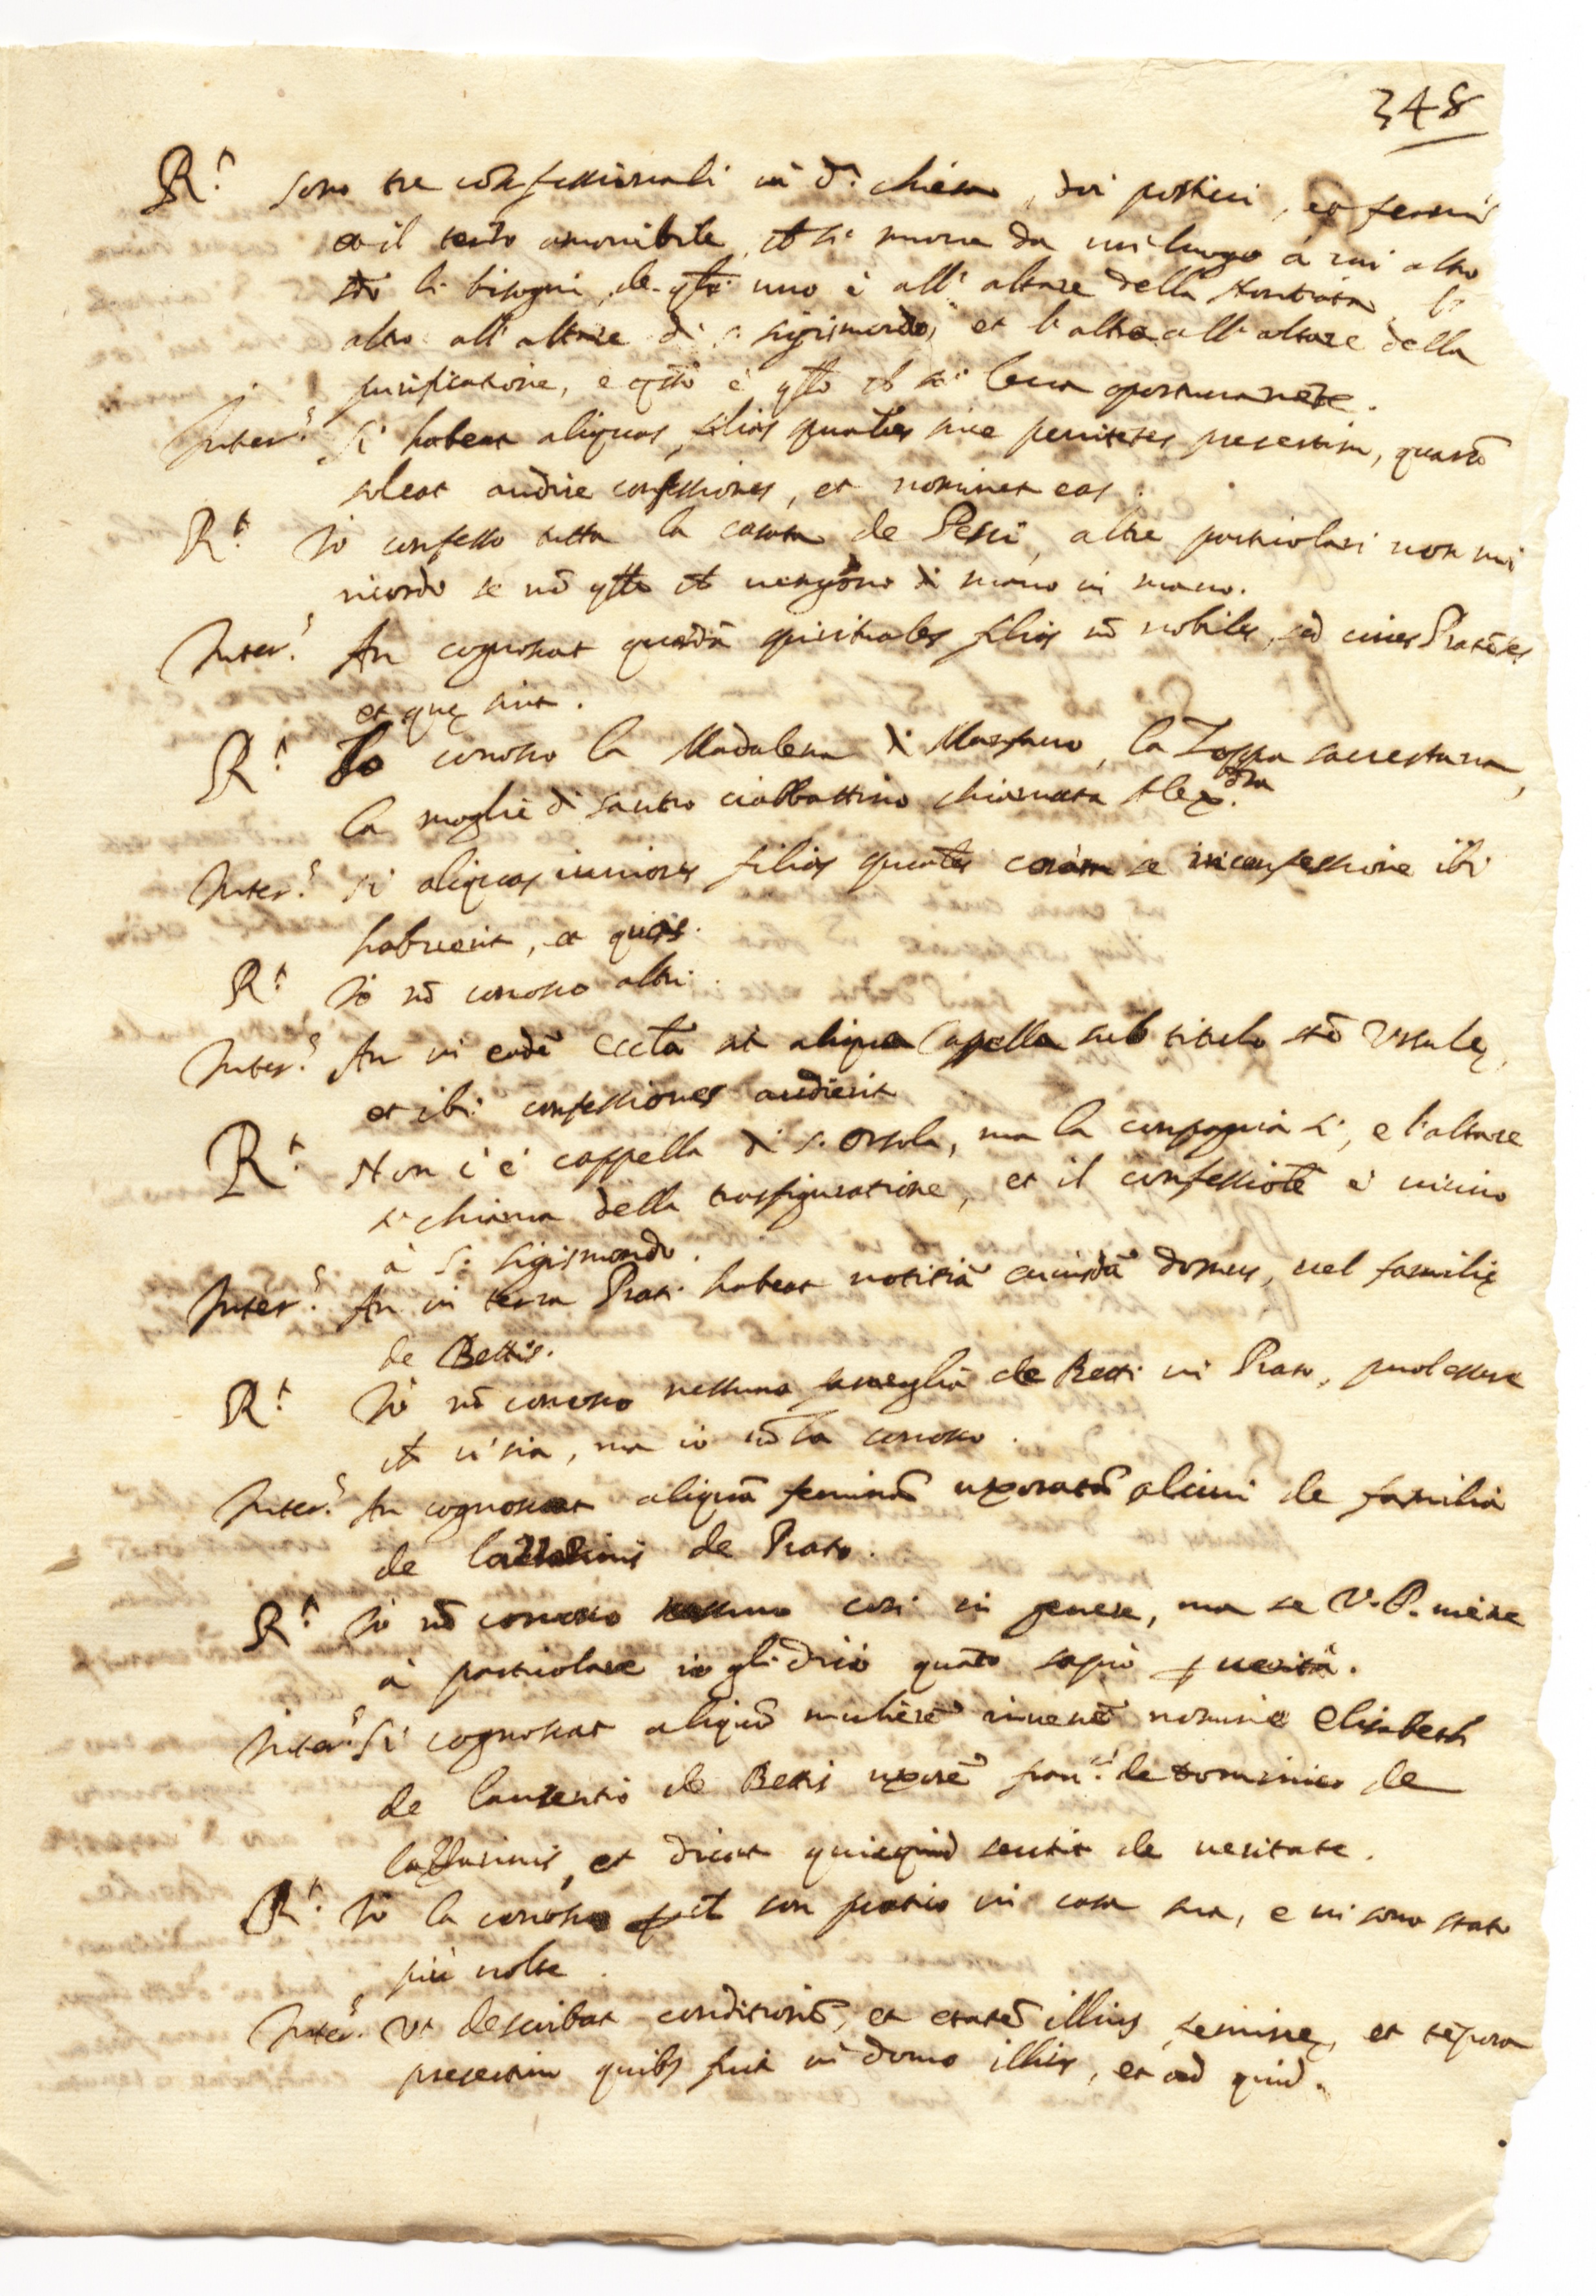 348
R.t sono tre cõfessionali in d.a chiesa, doi posticci, et fermi
et il terzo amovibile, ch si muove da un luogo à un altro
li bisogni, de q̃li uno è all' altare della Nontiata, l'
altro all' altare di s. Sigismondo, et l'altro all' altare della
purificatione, e q̃sto è q̃llo ch si leva
Inter.s Si habeat aliquas filias sp̃uales sive penitẽtes presertim, quarũ
soleat audire confessiones, et nominet eas.
R.t Io confesso tutta la casata de Pessi, altre particolari non mi
ricordo se nõ q̃lle ch vengono di mano in mano.
Inter.s An cognoscat quasdã spirituales filias nõ nobiles, sed cives Pratẽses
et quę sint.
R.t Io conosco la Madalena di la Zoppa sacrestana,
la moglie di Santro ciabbattino chiamata Alex.dra
Inter.s Si aliquas iuniores filias sp̃uales coram se in confessione ibi
habuerit, et quas.
R.t Io nõ conosco altri.
Inter.s An in eadẽ Eccl̃a sit aliqua Capella sub titulo stę Ursulę,
et ibi confessiones audierit
R.t Non c'è cappella di s. Orsola, ma la compagnia sì, e l'altare
si chiama della trasfiguratione, et il confessiol̃e è vicino
à s. Sigismondo.
Inter.s An in terra Prati habeat notitiã cuiusdã domus, vel familię
de Bettis.
R.t Io nõ conosco nessuna fameglia de Betti in Prato, puol essere
ch vi sia, ma io nõ la conosco.
Inter.s An cognoscat aliquã feminã uxoratã alicui de familia
de Lazzarinis de Prato.
R.t Io nõ conosco nessuno così in genere, ma se V.P. viene
à particolare io gli dirò quãto saprò p verità.
Inter.s Si cognoscat aliquã mulierẽ iuvenẽ nomine Elisabeth
de Laurentio de Bettis uxorẽ Fran.ci de Dominico de
Lazzarinis, et dicat quicquid sentit de veritate.
R.t Io la conosco p ch son pratico in casa sua, e vi sono stato
più volte.
Inter.s Ut describat conditionẽ, et etatẽ illius feminę, et tẽpora
presertim quibs fuit in domo illius, et ad quid.